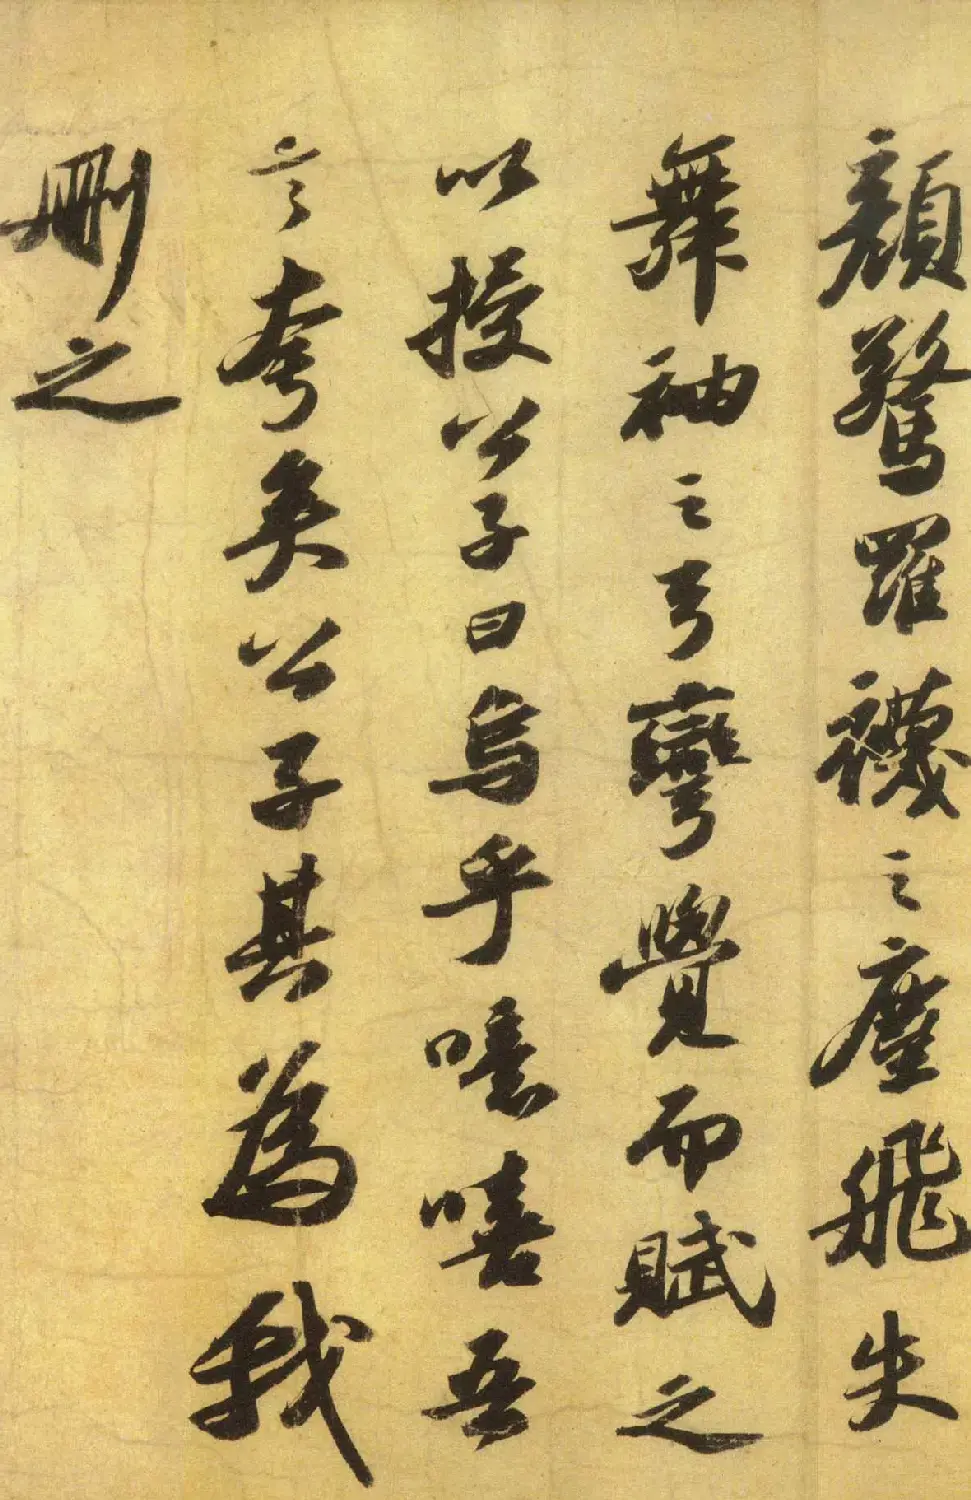 顏驚羅襪之塵飛失
舞袖之弓彎覺而賦之
以授公子曰烏乎噫嘻吾
言夸矣公子其為我
刪之